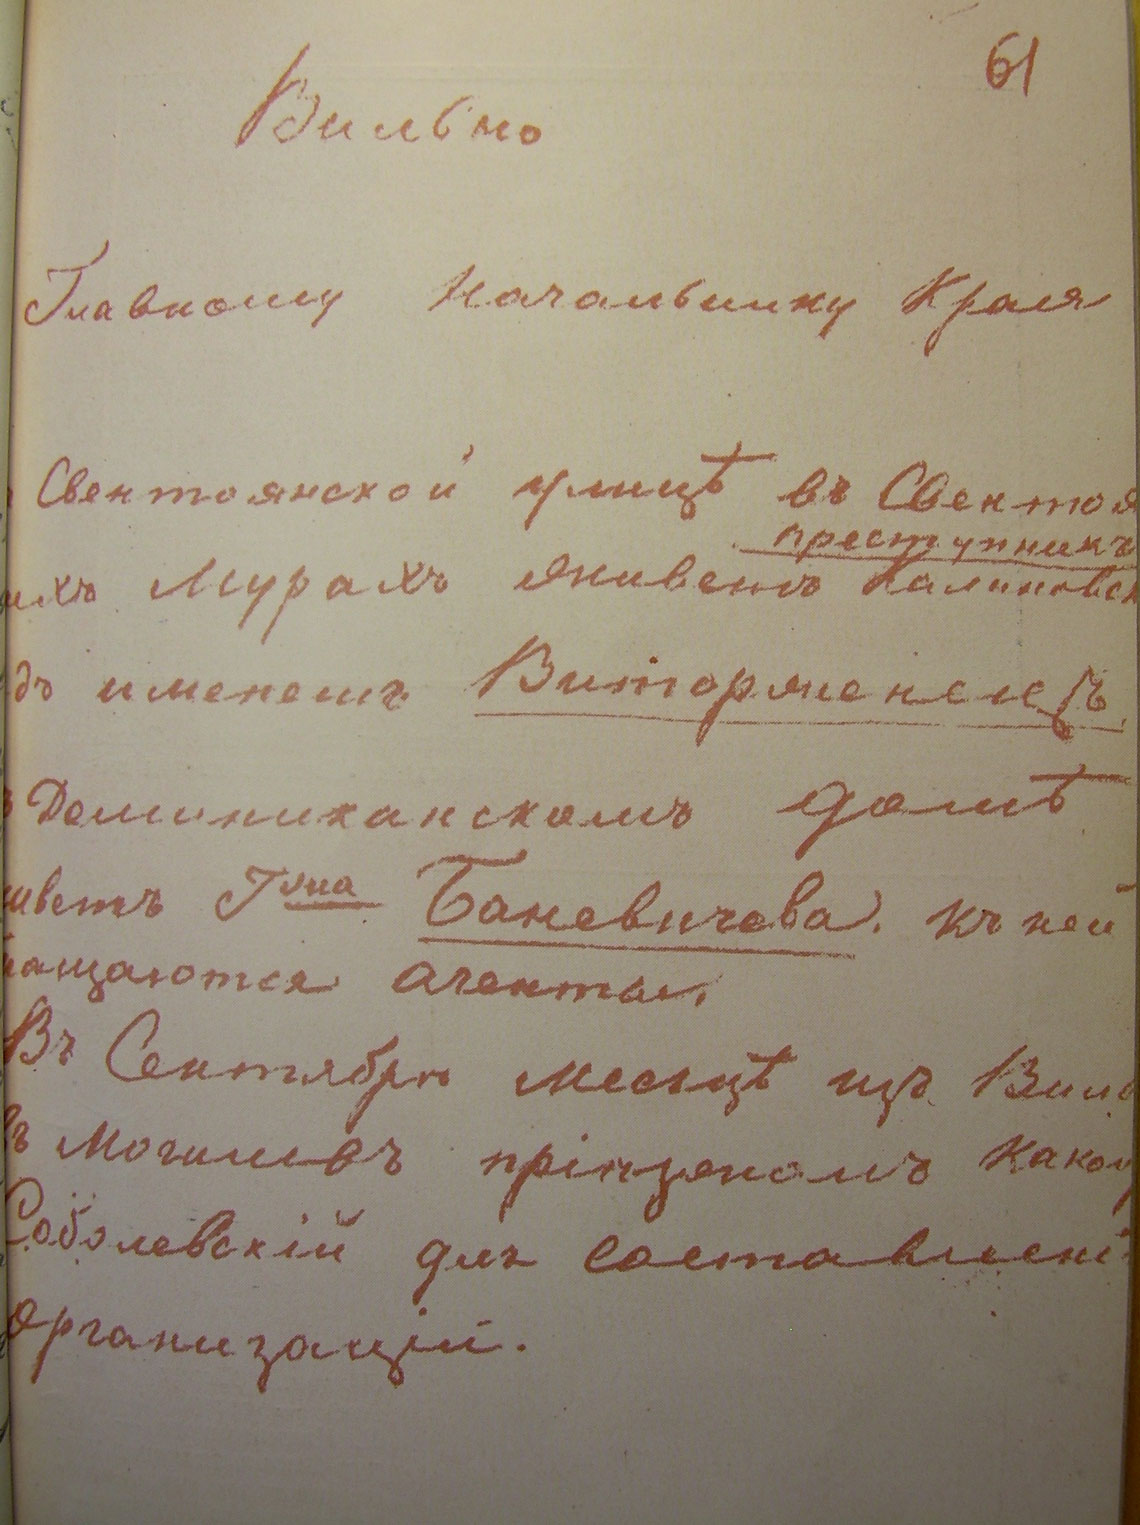 61
Вильно
Главному Начальнику Края
Свентоянской улицѣ въ Свентоя
преступникъ
ихъ Мурахъ живетъ Калиновск
дъ именемъ Виторженецъ,
Доминиканскомъ домѣ
иветъ Гжа Баневичева. къ ней
ащаются агенты.
Въ Сентябрѣ месяцѣ изъ Виль
въ Могилевъ пріѣзжалъ какой
Соболевскій для составлені
организаціи.